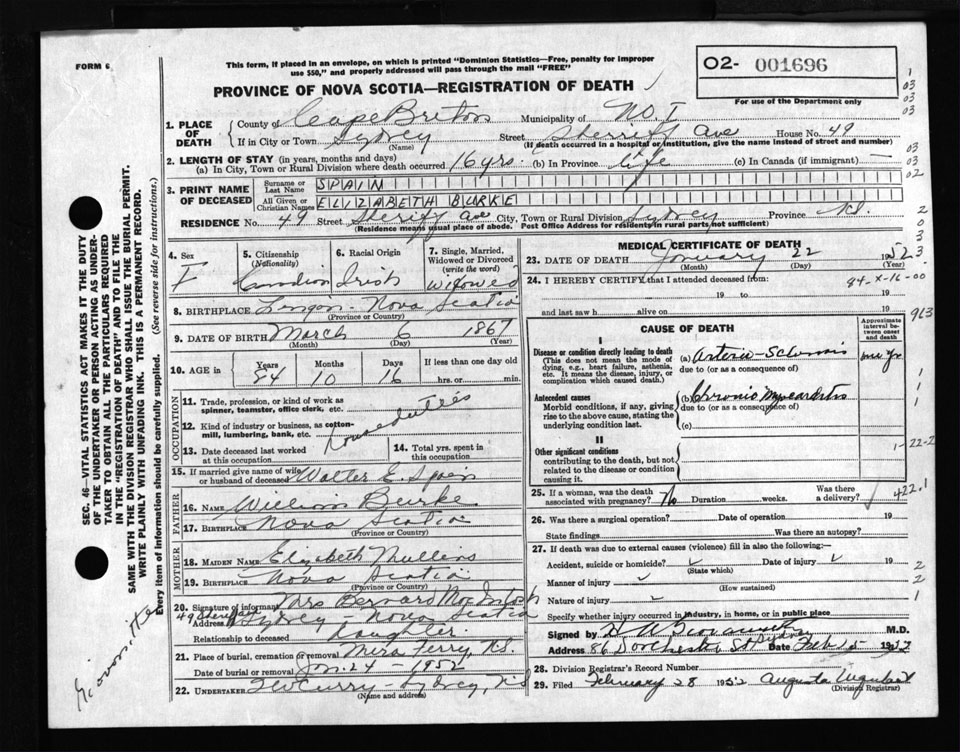 FORM 6
This form, if placed in an envelope, on which is printed "Dominion Statistics—Free, penalty for improper
use $50," and properly addressed will pass through the mail "FREE"
PROVINCE OF NOVA SCOTIA—REGISTRATION OF DEATH
O2- 001696
For use of the Department only
1. PLACE OF DEATH
County of Cape Breton Municipality of No. 1
If in City or Town Sydney Street Sherriff Ave House No. 49
(Name) (If death occurred in a hospital or institution, give the name instead of street and number)
2. LENGTH OF STAY (in years, months and days)
(a) In City, Town or Rural Division where death occurred 16 yrs. (b) In Province life (c) In Canada (if immigrant) —
3. PRINT NAME OF DECEASED
Surname or Last Name SPAIN
All Given or Christian Names ELIZABETH BURKE
RESIDENCE No. 49 Street Sheriff ave City, Town or Rural Division Sydney Province N.S.
(Residence means usual place of abode. Post Office Address for residents in rural parts not sufficient)
4. Sex F
5. Citizenship (Nationality) Canadian
6. Racial Origin Irish
7. Single, Married, Widowed or Divorced (write the word) Widowed
8. BIRTHPLACE Lingan - Nova Scotia
(Province or Country)
9. DATE OF BIRTH March 6 1867
(Month) (Day) (Year)
10. AGE in Years 84 Months 10 Days 16 If less than one day old
hrs. or min.
OCCUPATION
11. Trade, profession, or kind of work as spinner, teamster, office clerk, etc.
12. Kind of industry or business, as cotton-mill, lumbering, bank, etc.
duties
13. Date deceased last worked at this occupation
14. Total yrs. spent in this occupation
15. If married give name of wife or husband of deceased Walter E. Spain
FATHER
16. NAME William Burke
17. BIRTHPLACE Nova Scotia
MOTHER
18. MAIDEN NAME Elizabeth Mullins
19. BIRTHPLACE Nova Scotia
(Province or Country)
20. Signature of informant Mrs Bernard MacIntosh
Address 49 Sheriff Sydney Nova Scotia
Relationship to deceased Daughter
21. Place of burial, cremation or removal Mira Ferry, N.S.
Date of burial or removal Jan. 24 - 1952
22. UNDERTAKER Curry - Sydney, N.S
(Name and address)
MEDICAL CERTIFICATE OF DEATH
23. DATE OF DEATH January 22 1952
(Month) (Day) (Year)
24. I HEREBY CERTIFY that I attended deceased from: 84-X-16-00
19 to 19
and last saw h alive on 19
CAUSE OF DEATH
Approximate interval between onset and death
I
Disease or condition directly leading to death
(This does not mean the mode of dying, e.g., heart failure, asthenia, etc. It means the disease, injury, or complication which caused death.)
(a) Arterio-Sclerosis one yr
due to (or as a consequence of)
Antecedent causes
Morbid conditions, if any, giving rise to the above cause, stating the underlying condition last.
(b) Chronic Myocarditis
due to (or as a consequence of)
(c)
II
Other significant conditions
contributing to the death, but not related to the disease or condition causing it.
25. If a woman, was the death associated with pregnancy? No Duration weeks. Was there a delivery?
422.1
26. Was there a surgical operation? Date of operation 19
State findings Was there an autopsy?
27. If death was due to external causes (violence) fill in also the following:—
Accident, suicide or homicide? Date of injury 19
(State which)
Manner of injury
(How sustained)
Nature of injury
Specify whether injury occurred in industry, in home, or in public place
Signed by M.D.
Address 86 Dorchester St Sydney Date Feb 5
28. Division Registrar's Record Number
29. Filed February 28 1952 Augusta
(Division Registrar)
SEC. 46—VITAL STATISTICS ACT MAKES IT THE DUTY
OF THE UNDERTAKER OR PERSON ACTING AS UNDER-
TAKER TO OBTAIN ALL THE PARTICULARS REQUIRED
IN THE "REGISTRATION OF DEATH" AND TO FILE THE
SAME WITH THE DIVISION REGISTRAR WHO SHALL ISSUE THE BURIAL PERMIT.
WRITE PLAINLY WITH UNFADING INK. THIS IS A PERMANENT RECORD.
Every item of information should be carefully supplied. (See reverse side for instructions.)